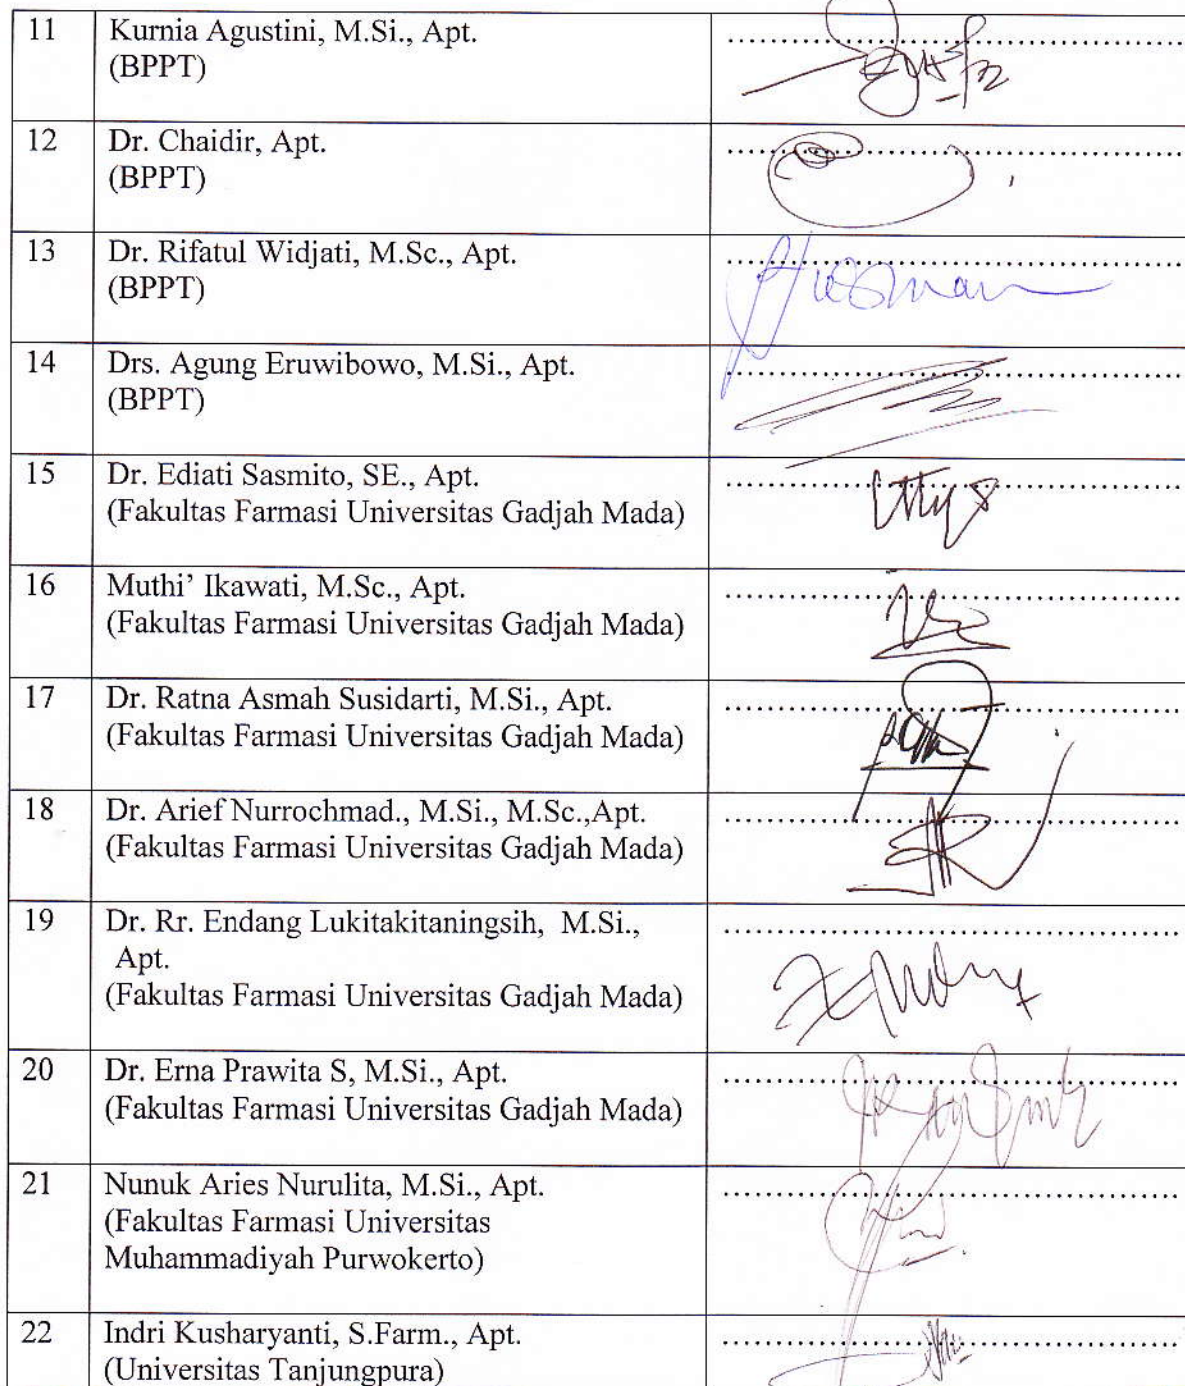 11 Kurnia Agustini, M.Si., Apt.
(BPPT)
12 Dr. Chaidir, Apt.
(BPPT)
13 Dr. Rifatul Widjati, M.Sc., Apt.
(BPPT)
14 Drs. Agung Eruwibowo, M.Si., Apt.
(BPPT)
15 Dr. Ediati Sasmito, SE., Apt.
(Fakultas Farmasi Universitas Gadjah Mada)
16 Muthi’ Ikawati, M.Sc., Apt.
(Fakultas Farmasi Universitas Gadjah Mada)
17 Dr. Ratna Asmah Susidarti, M.Si., Apt.
(Fakultas Farmasi Universitas Gadjah Mada)
18 Dr. Arief Nurrochmad., M.Si., M.Sc.,Apt.
(Fakultas Farmasi Universitas Gadjah Mada)
19 Dr. Rr. Endang Lukitakitaningsih, M.Si.,
Apt.
(Fakultas Farmasi Universitas Gadjah Mada)
20 Dr. Erna Prawita S, M.Si., Apt.
(Fakultas Farmasi Universitas Gadjah Mada)
21 Nunuk Aries Nurulita, M.Si., Apt.
(Fakultas Farmasi Universitas
Muhammadiyah Purwokerto)
22 Indri Kusharyanti, S.Farm., Apt.
(Universitas Tanjungpura)